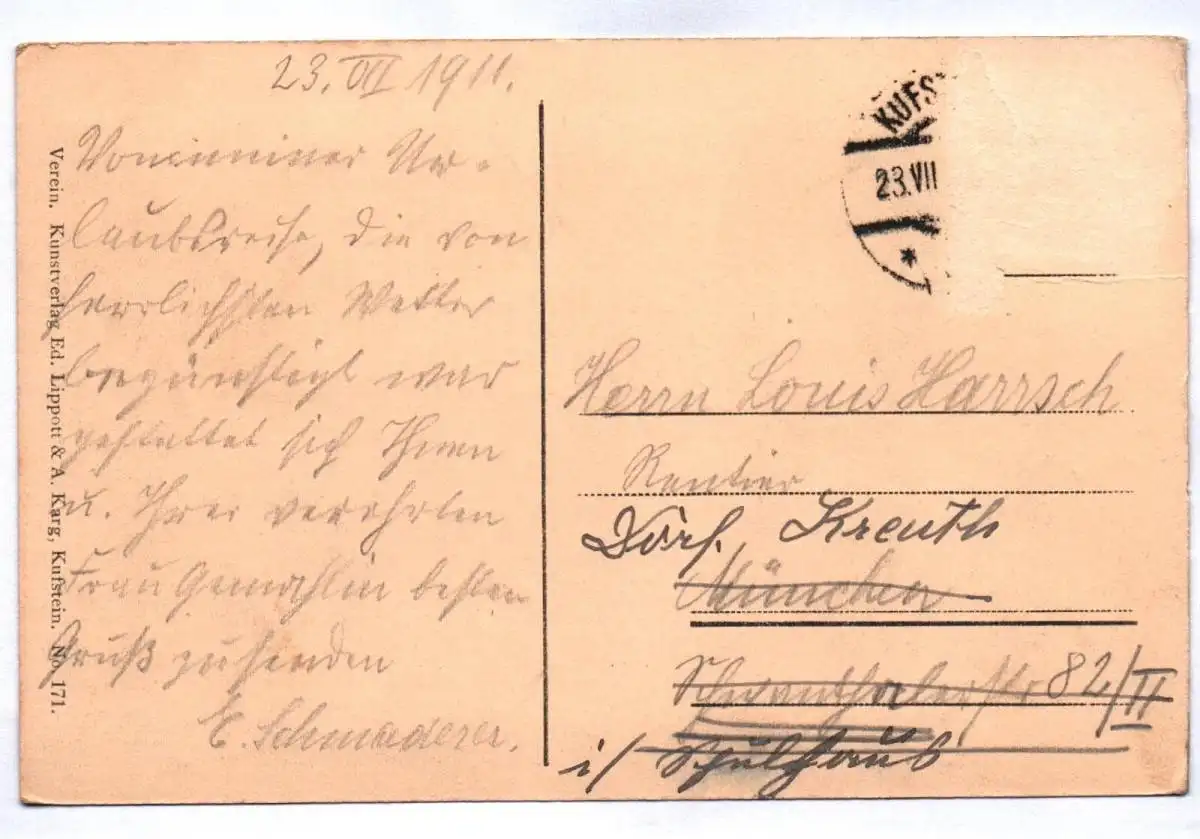 23. VII 1911.
Von meiner Ur-
laubsreise, die von
herrlichsten Wetter
begünstigt war
gestattet sich Ihnen
u. Ihrer verehrten
Frau Gemahlin besten
Gruß zu senden
E. Schmederer.
Verein. Kunstverlag Ed. Lippott & A. Karg, Kufstein. No. 171.
KUFST
23.VII
*
Herrn Louis Harrsch
Rentier
Dorf. Kreuth
München
Schwanthalerstr 82/II
i/ Schulhaus